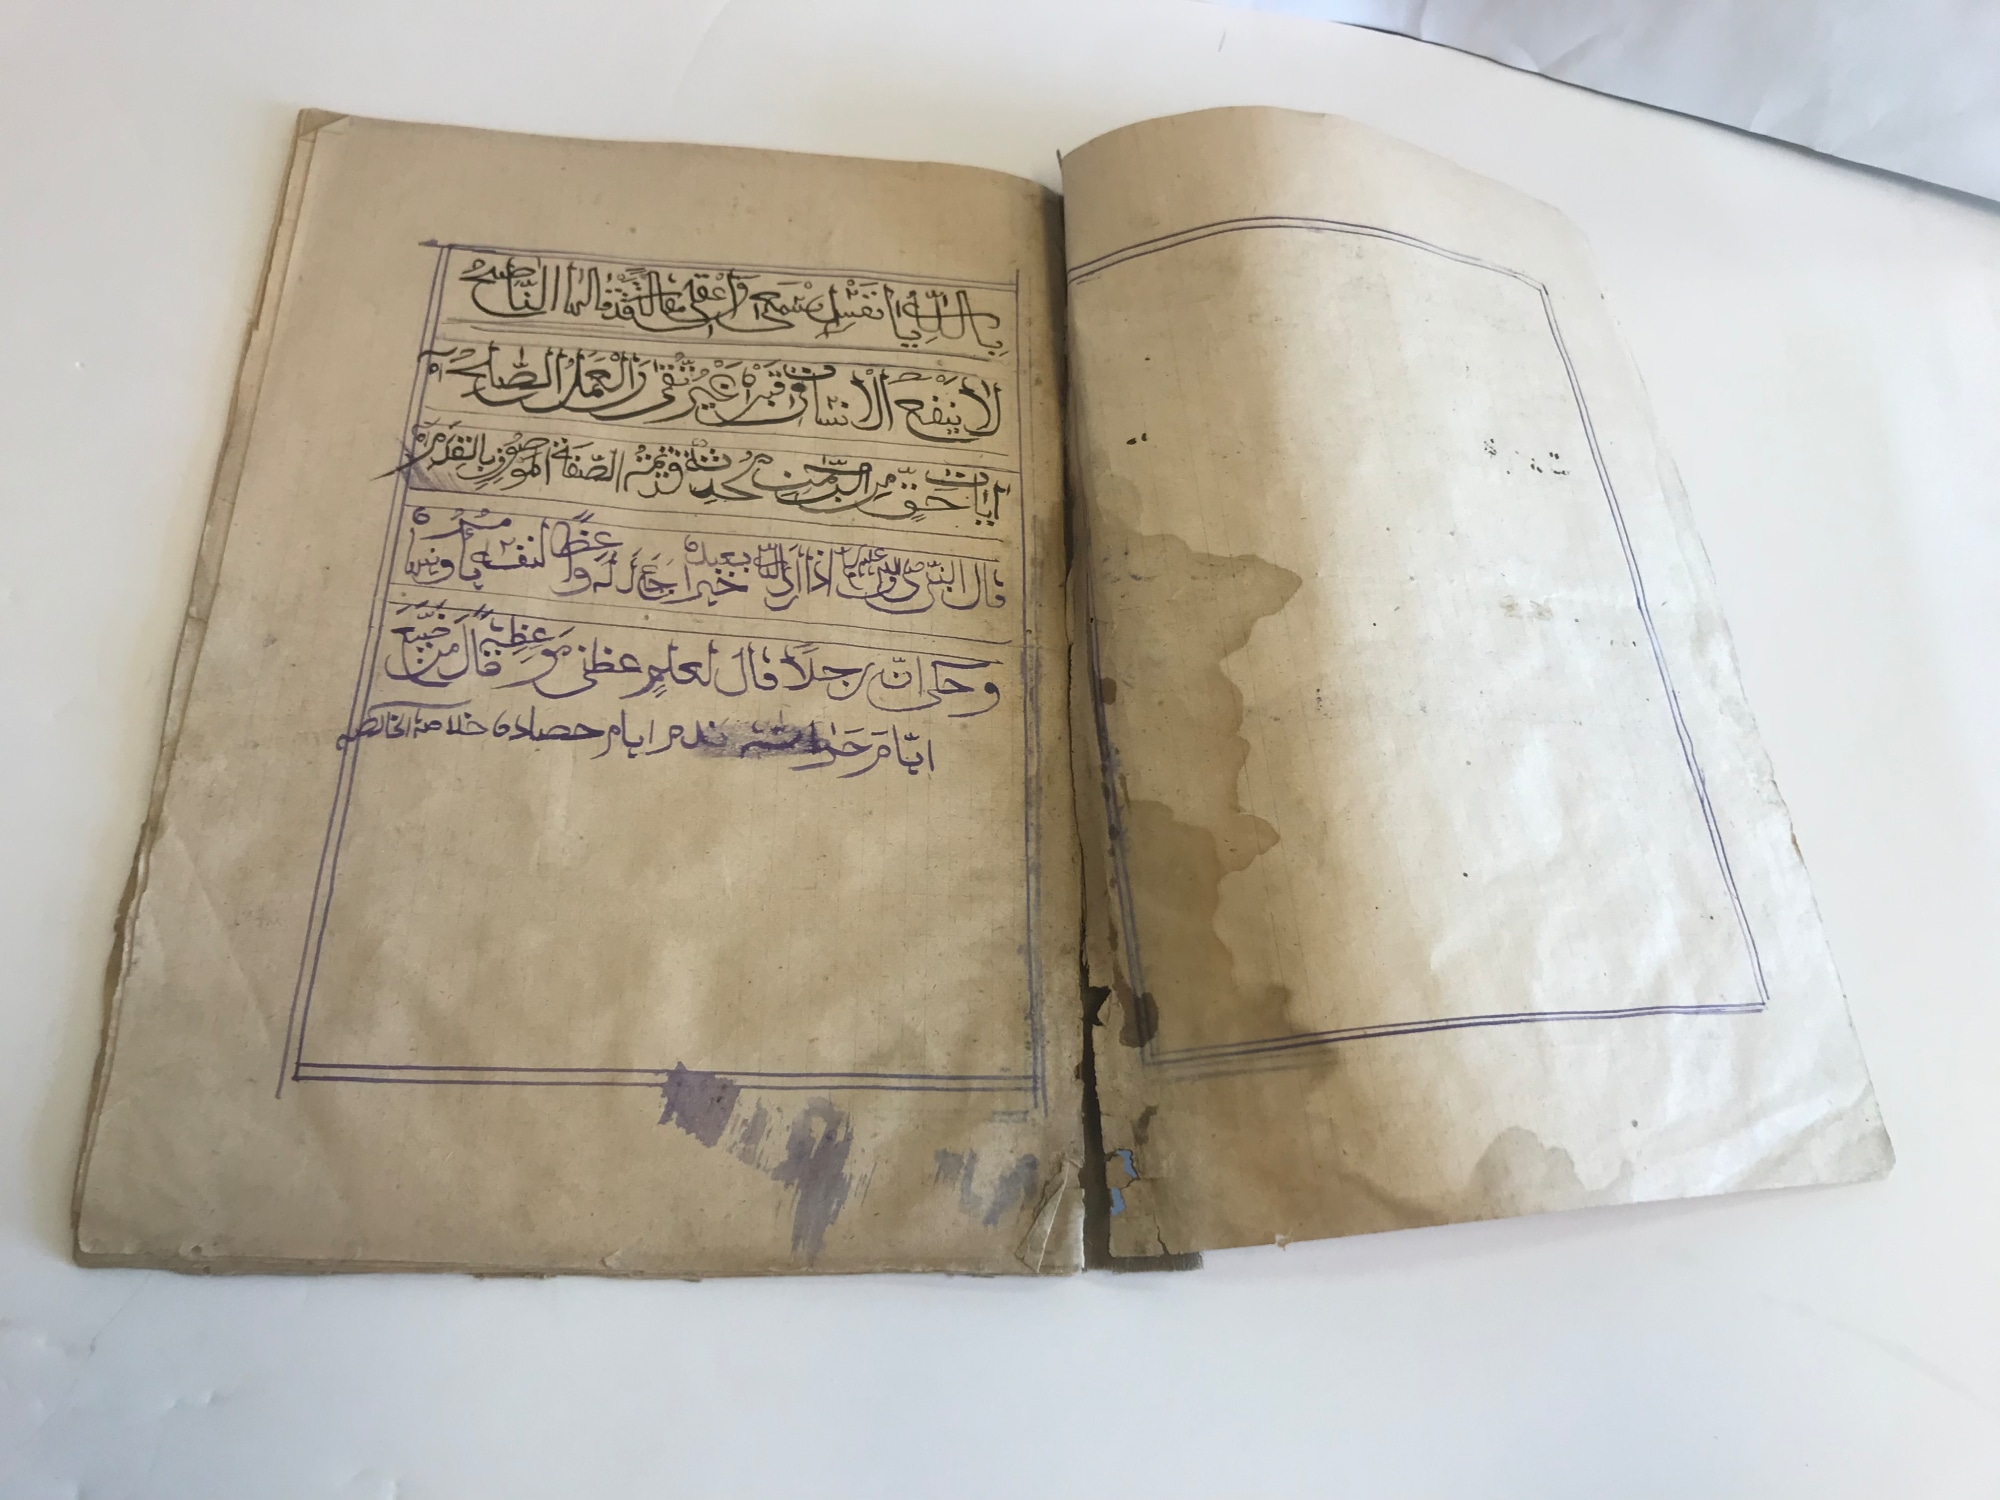 بِاللّٰهِ يَا نَفْسِ اسْمَعِى وَاعْقِلِى مَقَالَةً قَدْ قَالَهَا النَّاصِحُ
لَا يَنْفَعُ الْاِنْسَانَ فِى قَبْرِهِ غَيْرُ التُّقَى وَالْعَمَلُ الصَّالِحُ
اٰيَاتُ حَقٍّ مِنَ الرَّحْمٰنِ مُحْدَثَةٌ قَدِيمَةٌ الصِّفَةُ الْمَوْصُوفِ بِالْقِدَمِ
قال النبى صلى الله عليه اذا اراد الله بعبده خيرا جعل له واعظا لنفسه يأمره
وحكى انّ رجلًا قال لعلىم عظنى موعظةً قال من ضيّع
ايّامَ حَراثته ندم ايام حصاده خلاصة الخالصه